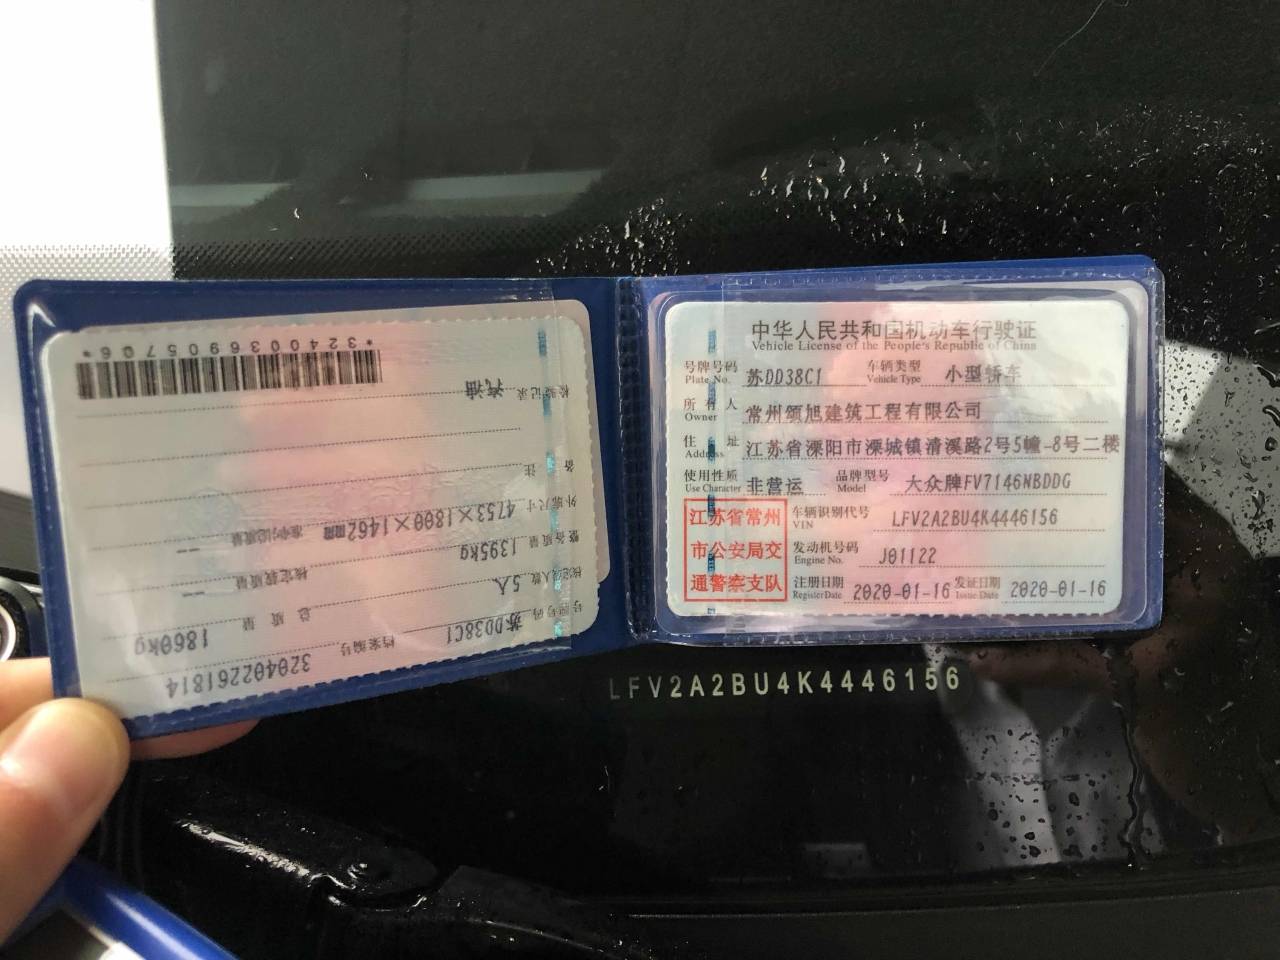 中华人民共和国机动车行驶证
Vehicle License of the People's Republic of China
号牌号码 苏DD38C1 车辆类型 小型轿车
Plate No. Vehicle Type
所有人 常州颂旭建筑工程有限公司
Owner
住址 江苏省溧阳市溧城镇清溪路2号5幢-8号二楼
Address
使用性质 非营运 品牌型号 大众牌FV7146NBDDG
Use Character Model
江苏省常州
市公安局交
通警察支队
车辆识别代号 LFV2A2BU4K4446156
VIN
发动机号码 J01122
Engine No.
注册日期 2020-01-16 发证日期 2020-01-16
Register Date Issue Date
号牌号码 苏DD38C1 档案编号 320402261814
核定载人数 5人 总质量 1860kg
整备质量 1395kg 核定载质量 --
外廓尺寸 4753×1800×1462mm 准牵引总质量 --
备注
检验记录 汽油
*3240036905706*
LFV2A2BU4K4446156